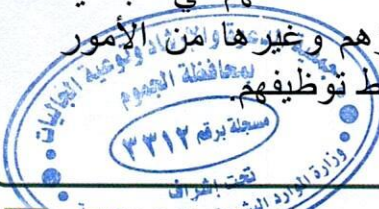 هم في
وهم وغيرها من الأمور
ط توظيفهم.
وتوعية الجاليات
بمحافظة الجموم
مسجلة برقم ٣٣١٢
تحت إشراف
وزارة الموارد البشر